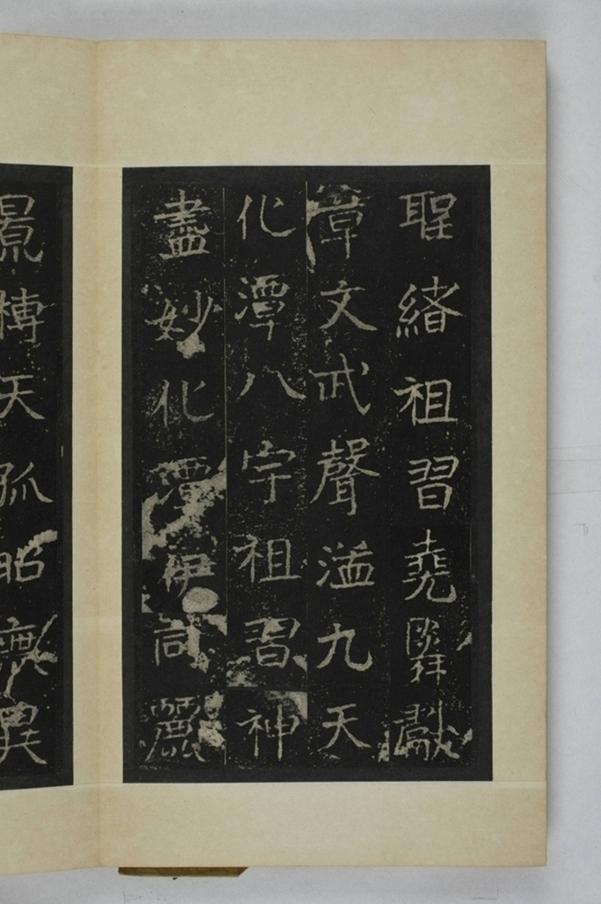 聖緒祖習堯獻
章文武聲溢九天
化潭八宇祖習神
盡妙化潭伊同麗
景天孤昭無異